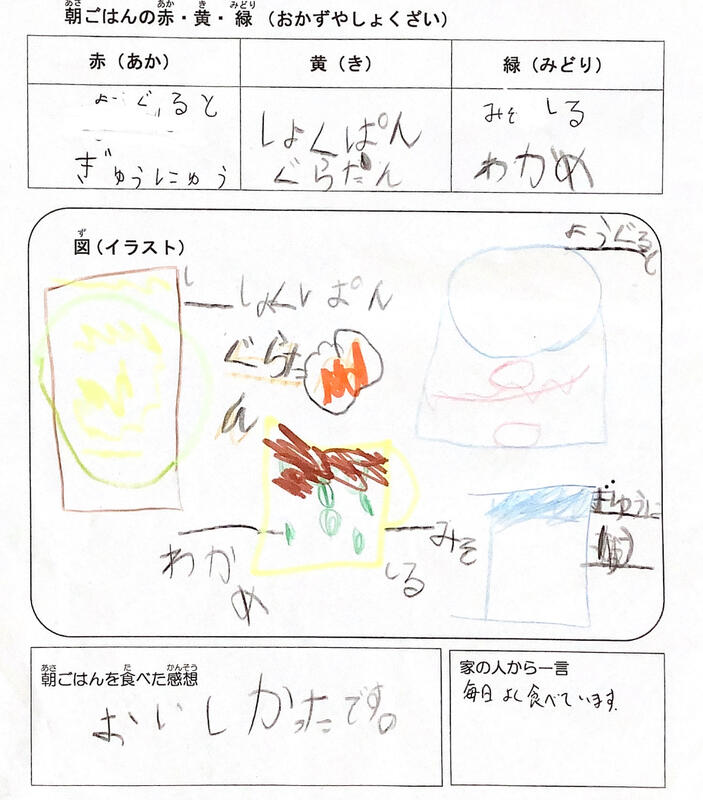 朝ごはんの赤・黄・緑（おかずやしょくざい）
赤（あか） 黄（き） 緑（みどり）
よーぐると しょくぱん みそしる
ぎゅうにゅう ぐらたん わかめ
図（イラスト）
ようぐると
しょくぱん
ぐらた
ん
ぎゅうに
わかめ
みそしる
朝ごはんを食べた感想
おいしかったです。
家の人から一言
毎日よく食べています。